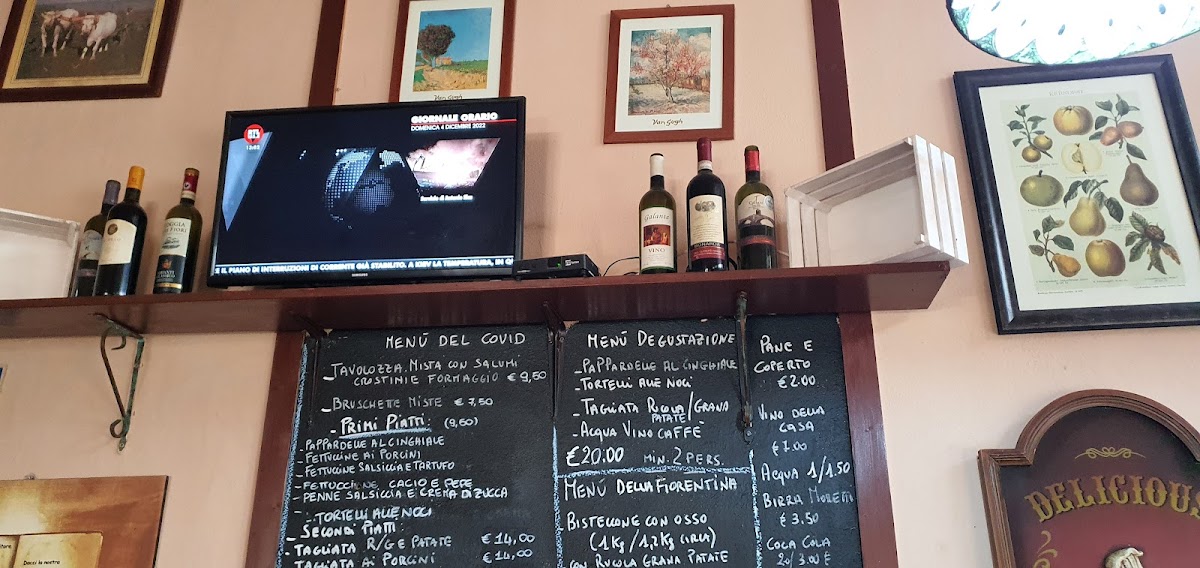 Van Gogh
Van Gogh
GIORNALE ORARIO
DOMENICA 4 DICEMBRE 2022
E IL PIANO DI INTERRUZIONI DI CORRENTE GIÀ STABILITO. A KIEV LA TEMPERATURA, IN
SAMSUNG
Galante
VINO
MENÚ DEL COVID
- TAVOLOZZA MISTA CON SALUMI
CROSTINI E FORMAGGIO €9,50
- BRUSCHETTE MISTE €7,50
- PRIMI PIATTI: (9,50)
- PAPPARDELLE AL CINGHIALE
- FETTUCINE AI PORCINI
- FETTUCINE SALSICCIA E TARTUFO
- FETTUCCINE CACIO E PEPE
- PENNE SALSICCIA E CREMA DI ZUCCA
- TORTELLI ALLE NOCI
- SECONDI PIATTI:
- TAGLIATA R/G E PATATE €14,00
TAGLIATA AI PORCINI €14,00
MENÚ DEGUSTAZIONE
- PAPPARDELLE AL CINGHIALE
- TORTELLI ALLE NOCI
- TAGLIATA RUCOLA/GRANA
PATATE
- ACQUA VINO CAFFÈ
€20.00 MIN. 2 PERS.
MENÚ DELLA FIORENTINA
BISTECCONE CON OSSO
(1Kg/1,2Kg CIRCA)
CON RUCOLA GRANA PATATE
PANE E
COPERTO
€2.00
VINO DELLA
CASA
€7.00
ACQUA 1/1.50
BIRRA MORETTI
€3.50
COCA COLA
DELICIOUS